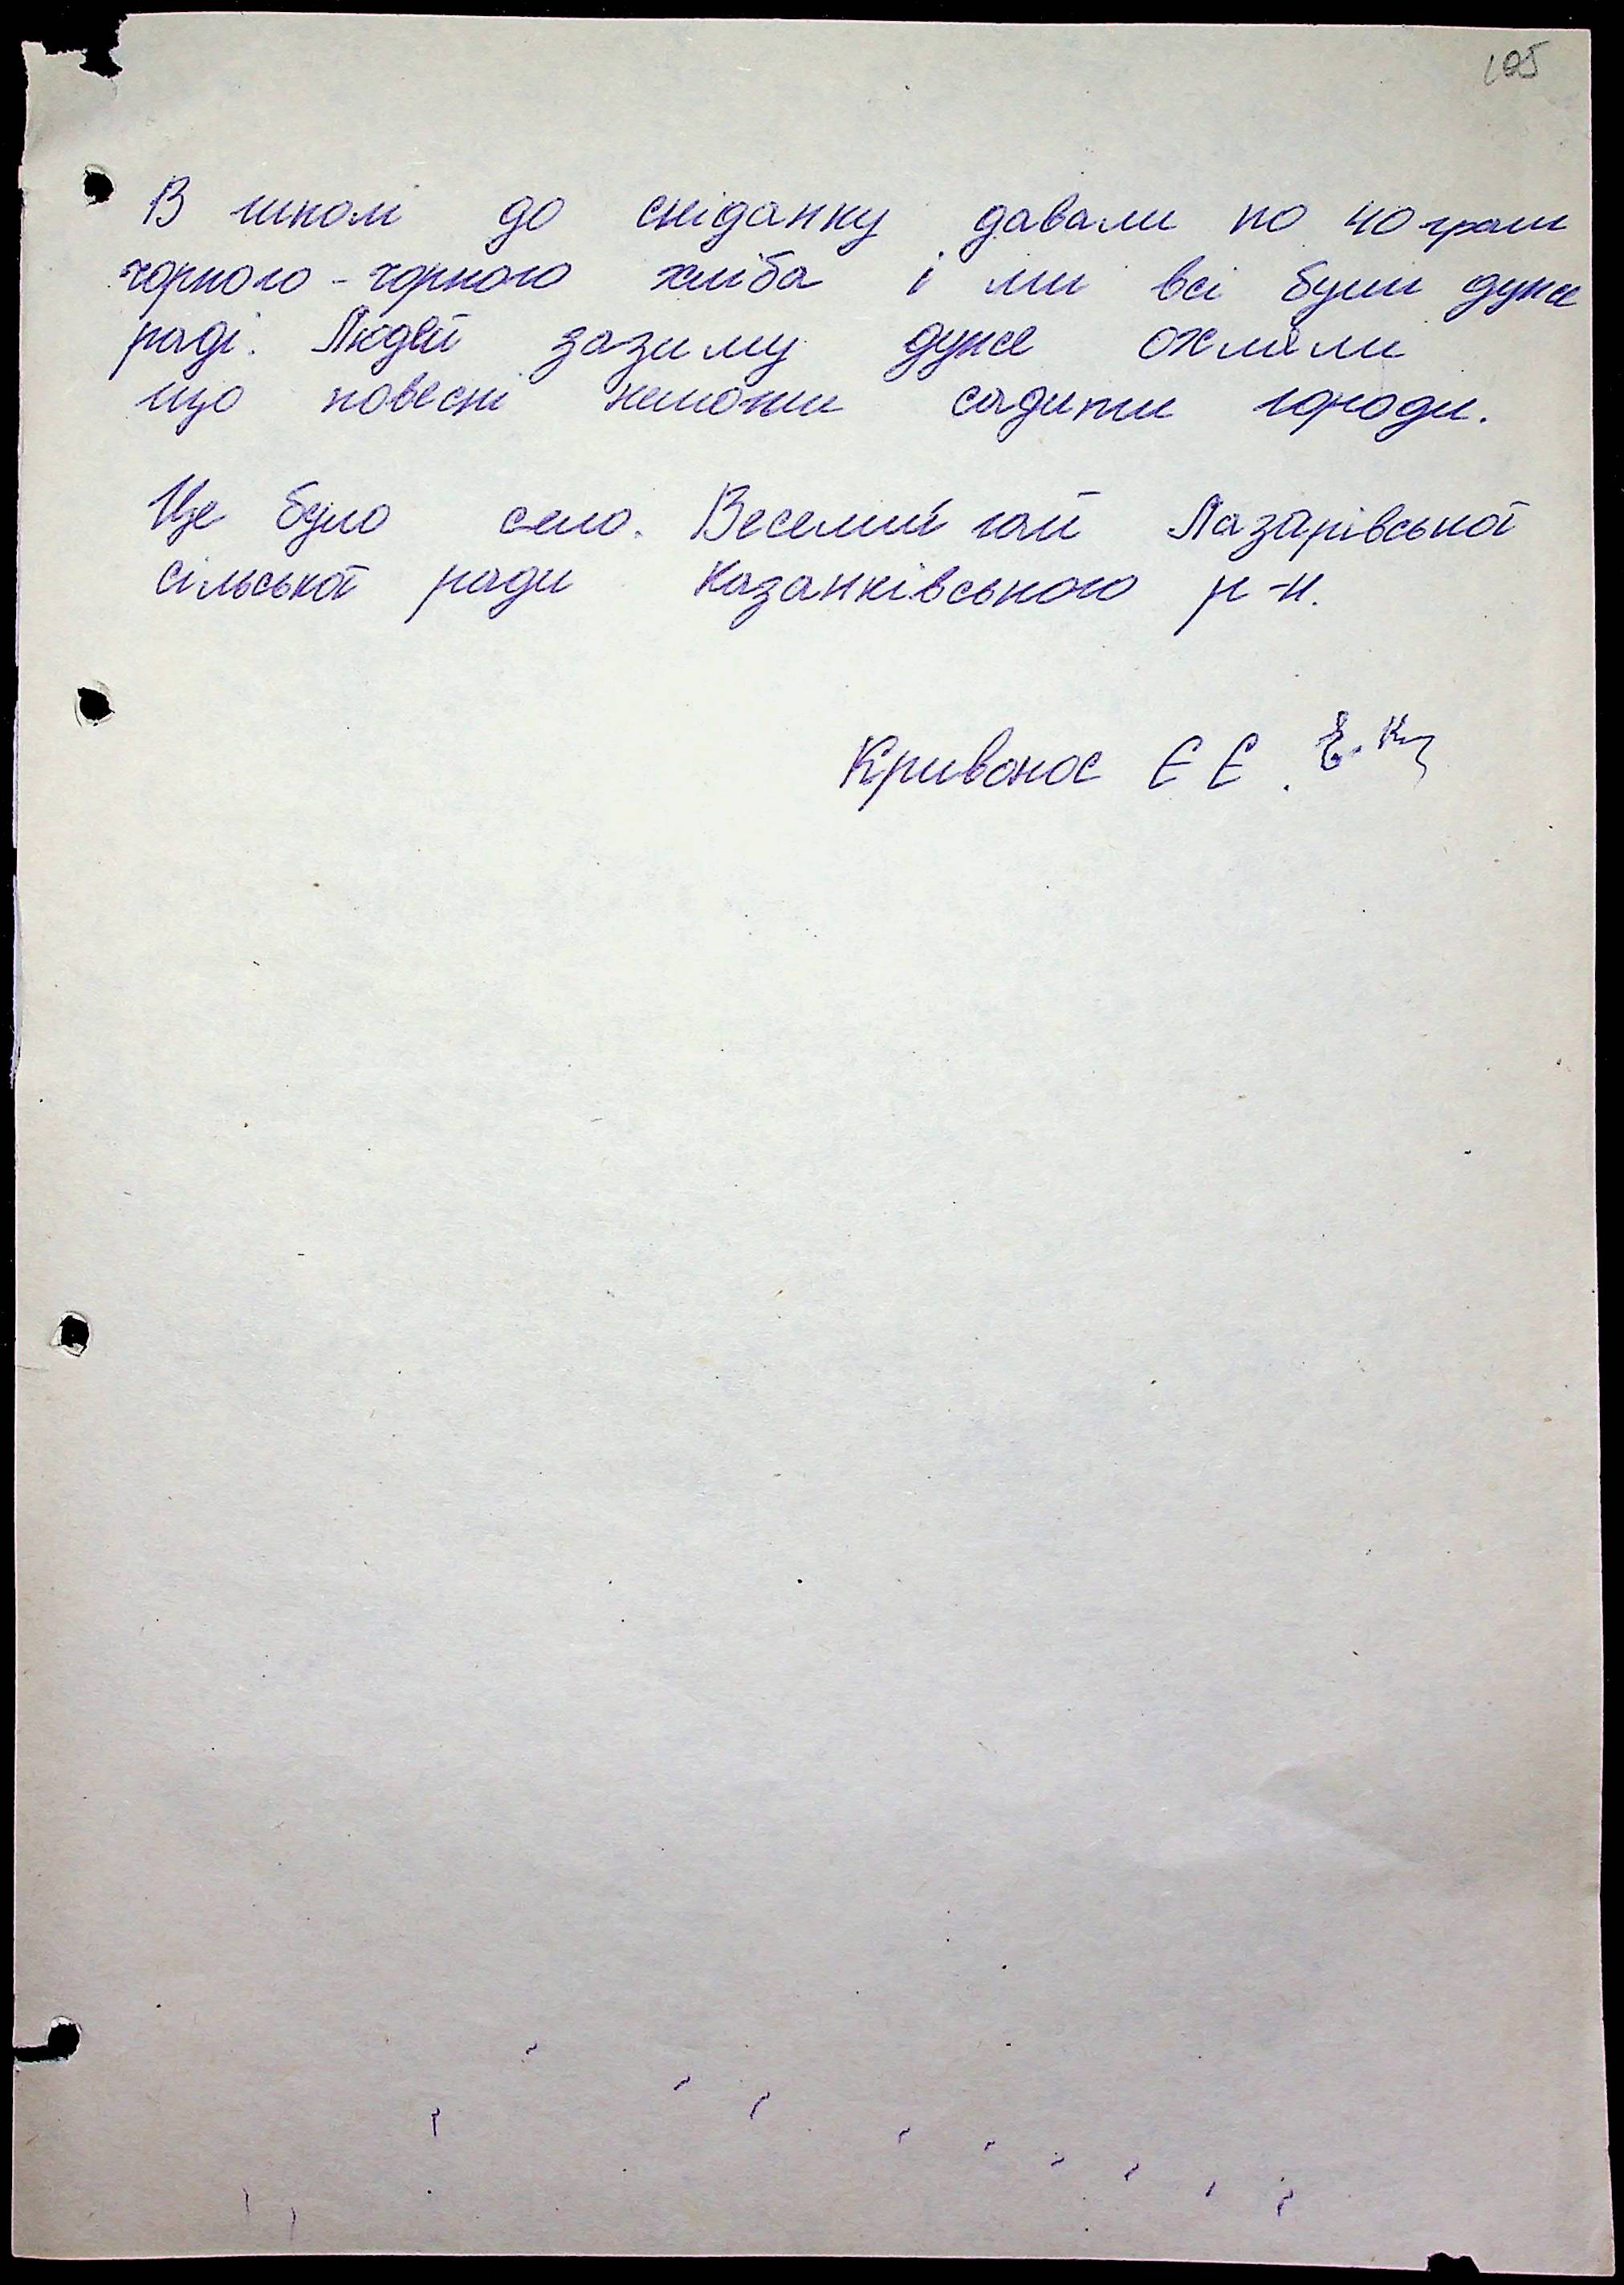 105
В школі до сніданку давали по 40 грам
чорного - чорного хліба і ми всі були дуже
раді. Людей за зиму дуже охляли
що повесні немогли садити городи.
Це було село. Веселий гай Лазарівської
сільської ради Казанківського р-н.
Кривонос Є Є.